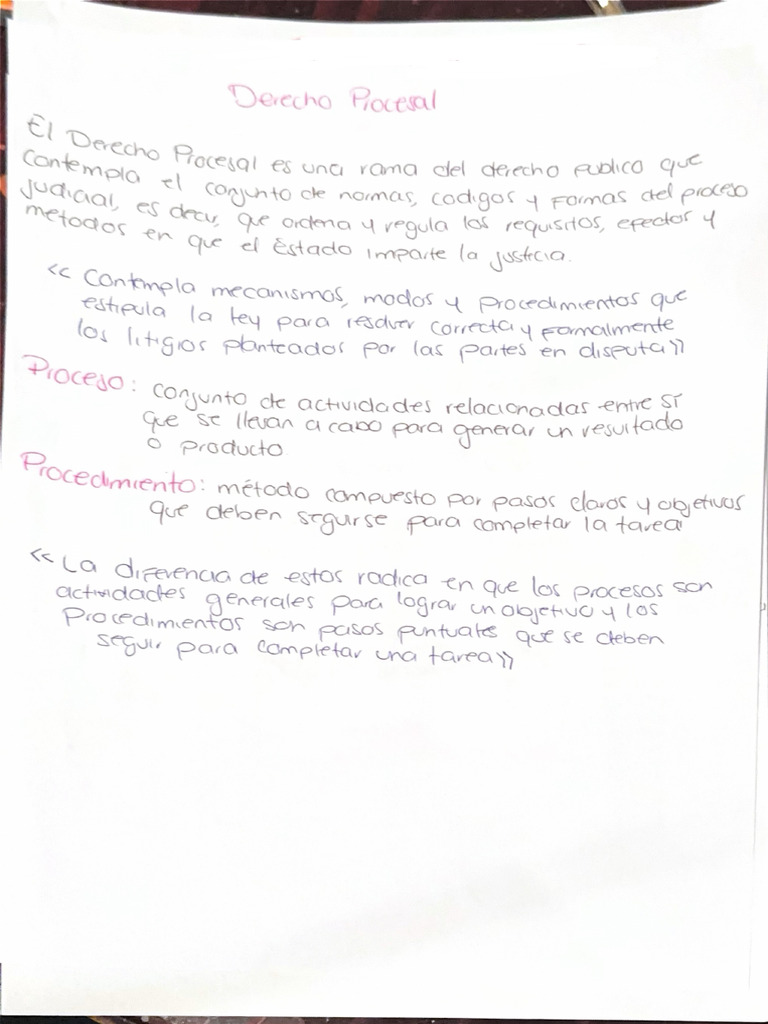 Derecho Procesal
El Derecho Procesal es una rama del derecho publico que
contempla el conjunto de normas, codigos y formas del proceso
judicial, es decir, que ordena y regula los requisitos, efectos y
metodos en que el Estado imparte la justicia.
<< Contempla mecanismos, modos y procedimientos que
estipula la ley para resolver correcta y formalmente
los litigios planteados por las partes en disputa>>
Proceso: conjunto de actividades relacionadas entre sí
que se llevan a cabo para generar un resultado
o producto
Procedimiento: método compuesto por pasos claros y objetivos
que deben seguirse para completar la tarea
<< La diferencia de estos radica en que los procesos son
actividades generales para lograr un objetivo y los
Procedimientos son pasos puntuales que se deben
seguir para completar una tarea>>